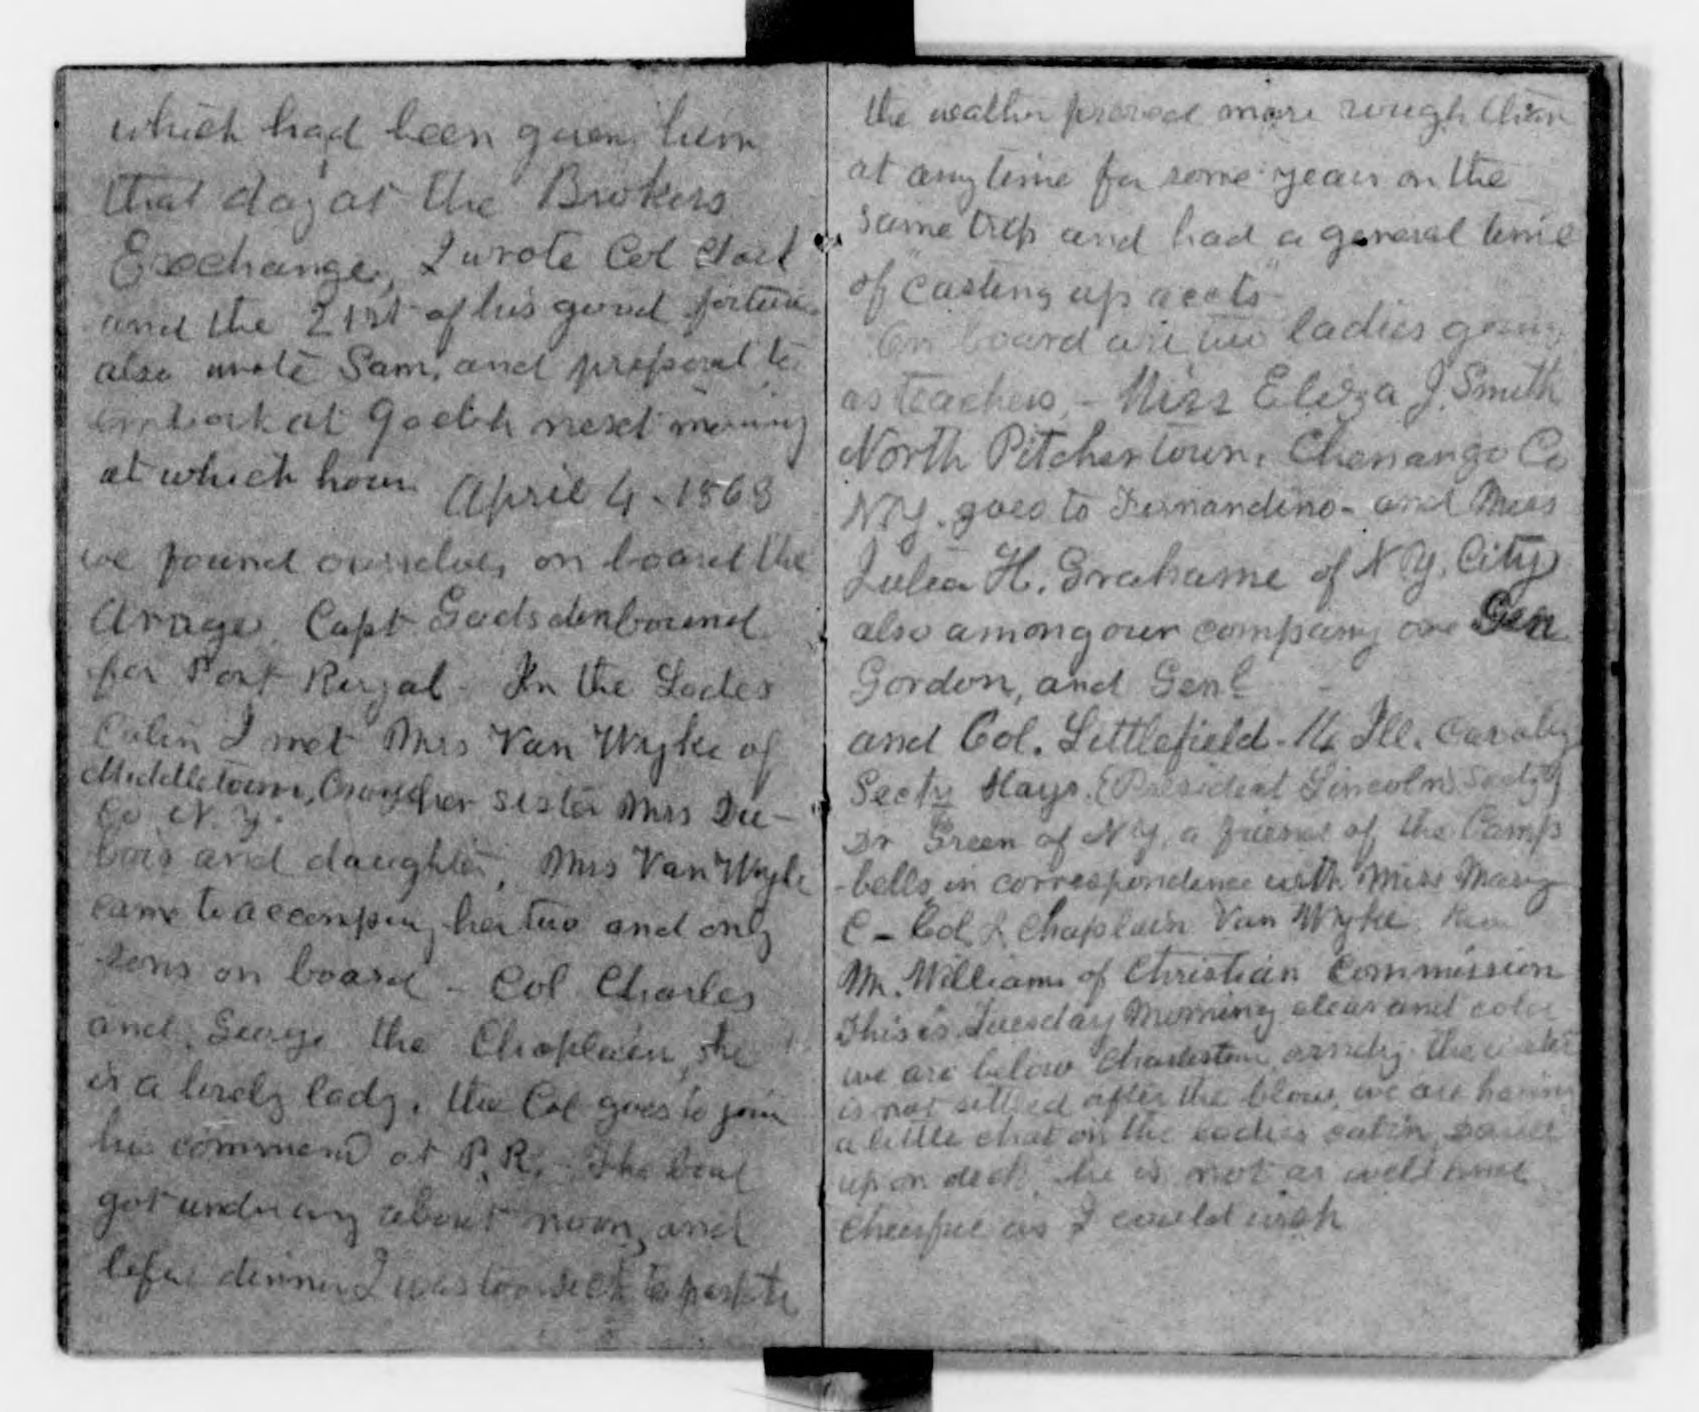 which had been given him
that day at the Brokers
Exchange, I wrote Col
and the 21st of his good fortune
also wrote Sam, and prepared to
embark at 9 oclck next morning
at which hour April 4 - 1863
we found ourselves on board the
Arage Capt Gadsden bound
for Port Royal - In the Ladies
Cabin I met Mrs Van Wyke of
Middletown, her sister Mrs Du-
Co. N.Y.
bois and daughter, Mrs Van Wyke
came to accompany her two and only
sons on board - Col Charles
and George the Chaplain, she
is a lovely lady, the Col goes to join
his command at P.R. - The boat
got underway about noon, and
before dinner I was too sick to
the weather proved more rough than
at anytime for some years on the
same trip and had a general time
of "casting up accts"
On board are two ladies going
as teachers, - Miss Eliza J. Smith
North Pitchertown, Chenango Co
N.Y. goes to Fernandino - and Miss
Julia H. Grahame of N.Y. City
also among our company are Gen
Gordon, and Genl
and Col. Littlefield - Ill. Cavalry
Secty Hays. (President Lincolns Secty)
Dr Green of N.Y. a friend of the Camp
-bells, in correspondence with Miss Mary
C - Col & Chaplain Van Wyke, Rev
Mr. Williams of Christian Commission
This is Tuesday Morning clear and cold
we are below Charleston, the water
is not settled after the blow, we are having
a little chat in the ladies cabin,
up on deck, he is not as well and
cheerful as I could wish